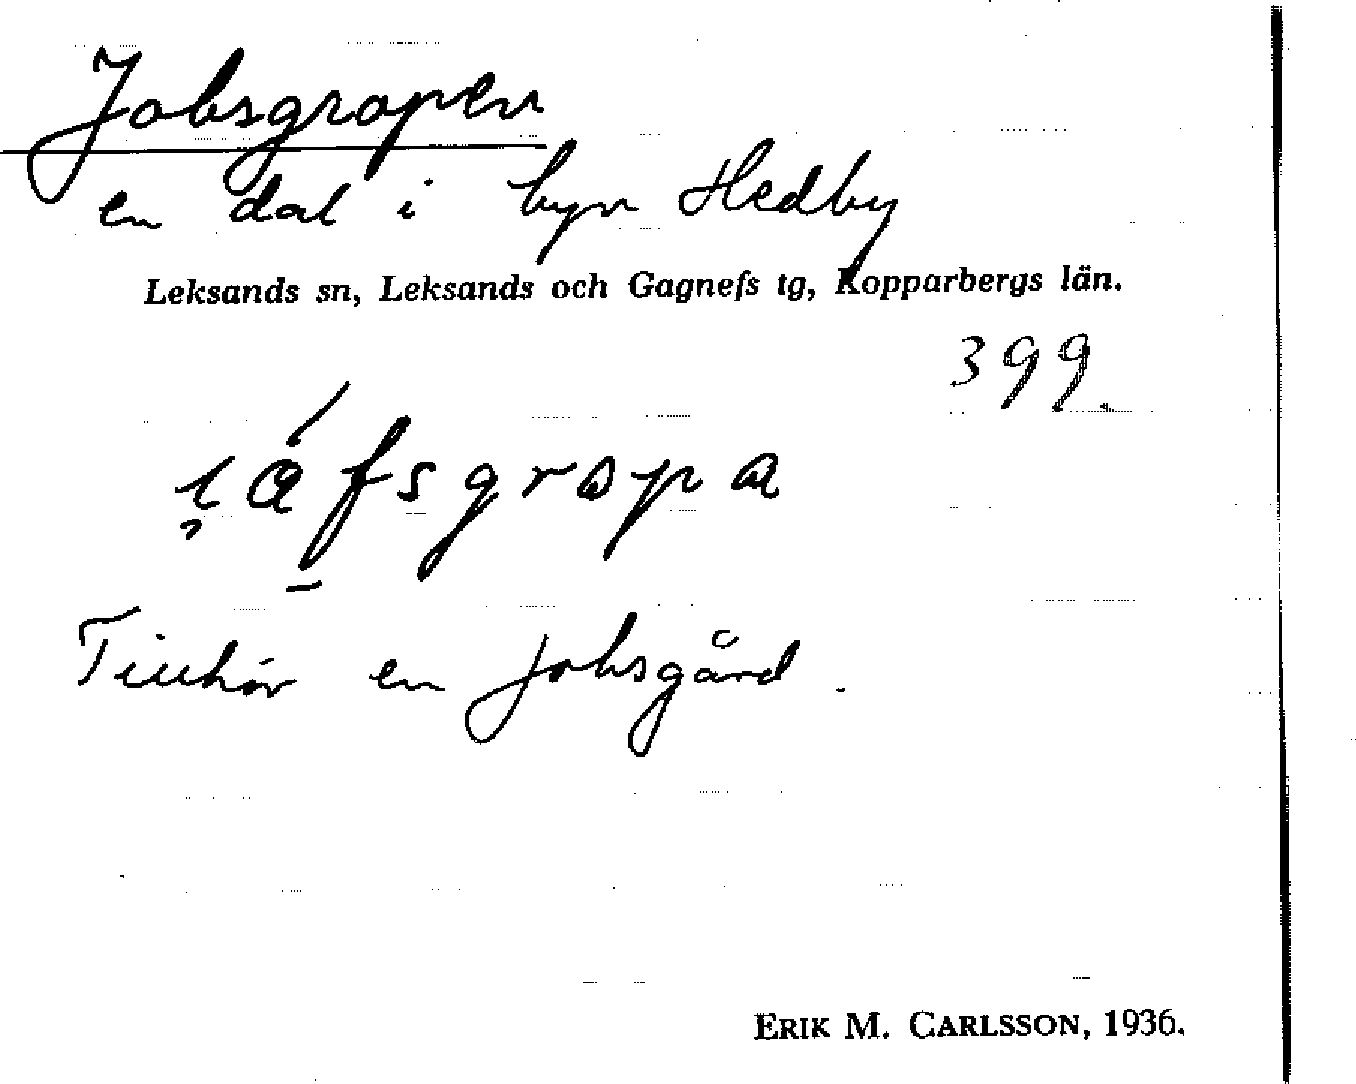 Jobsgropen
en dal i byn Hedby
Leksands sn, Leksands och Gagnefs tg, Kopparbergs län.
399.
Tillhör en Jobsgård.
ERIK M. CARLSSON, 1936.